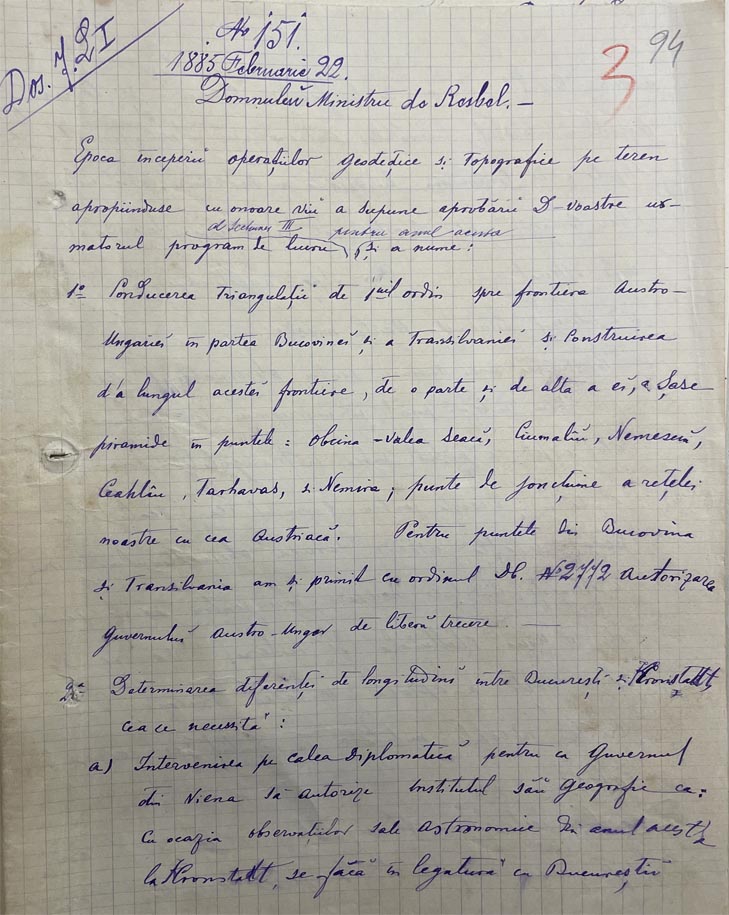 Dos. 7. 2 I
No 151.
1885 Februarie 22.
3
94
Domnului Ministru de Resbel. —
Epoca începerii operaţiilor geodeţice si Topografice pe teren
apropiinduse cu onoare viu a supune aprobării D-voastre ur-
al Sectiunei III pentru anul acesta
matorul program de lucru, şi a nume:
1o Conducerea Triangulaţii de Iiul ordin spre frontiera Austro-
Ungariei în partea Bucovinei şi a Transilvaniei si Construirea
d'a lungul acestei frontiere, de o parte şi de alta a ei, a Şase
piramide în punctele: Obcina-Valea Seacă, Ciumalîu, Nemeseră,
Ceahlîu, Tarhavas, si Nemira; punte de joncţiune a reţelei
noastre cu cea Austriacă. Pentru punctele din Bucovina
şi Transilvania am şi primit cu ordinul Dv. No 2772 autorizarea
Guvernului Austro-Ungar de liberă trecere. —
2a Determinarea diferenţei de longitudină între Bucureşti şi Kronstatt,
cea ce necesită:
a) Intervenirea pe calea Diplomatică pentru ca Guvernul
din Viena să autorize Institutul său geografic ca:
Cu ocazia observaţiilor sale Astronomice din anul acesta
la Kronstatt, se facă în legatură cu Bucureştii